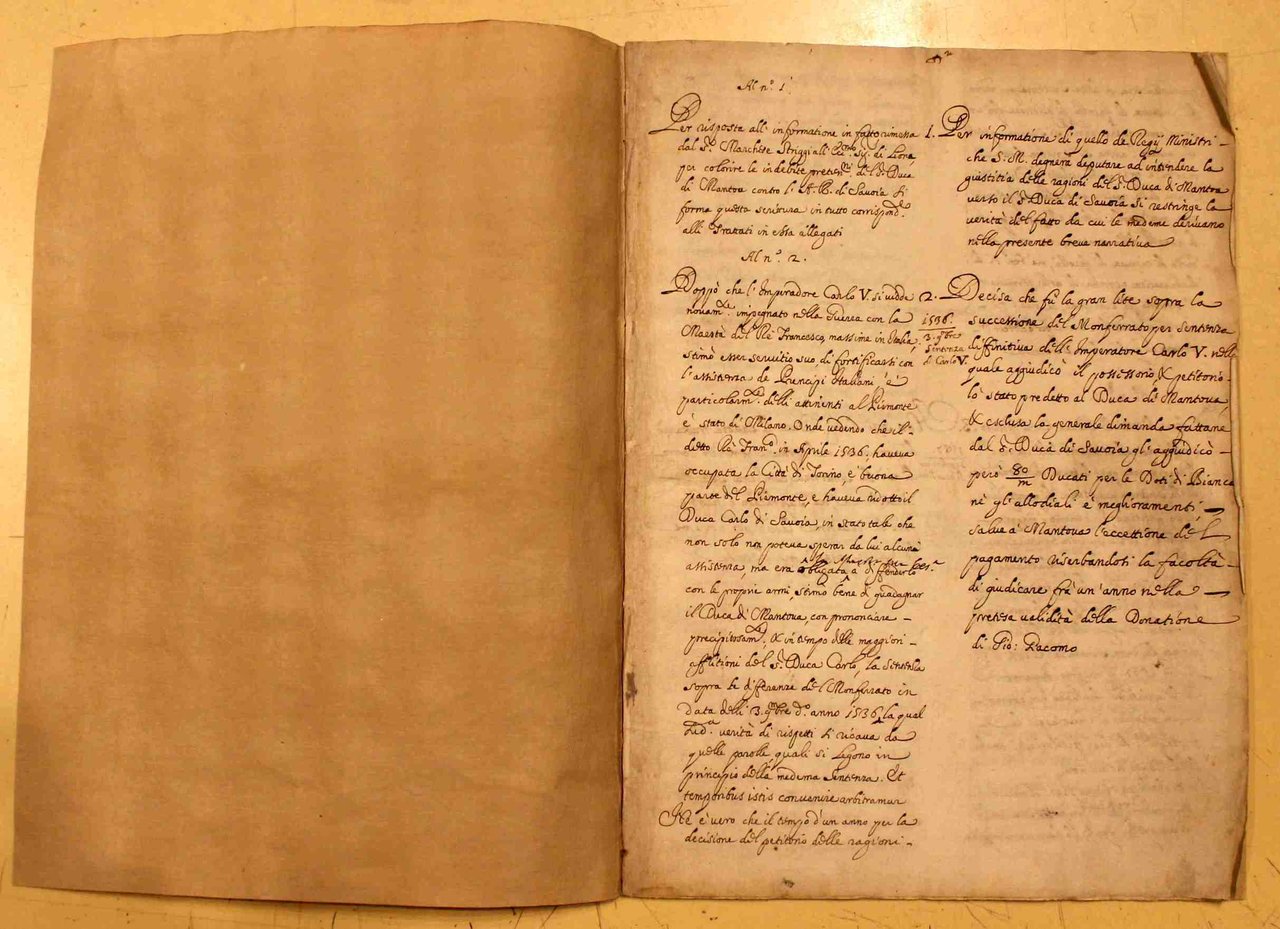 2
Al n.º 1.
Per risposta all' informatione in fatto rimessa
dal S.r Marchese Striggi all' Ill.mo Sig. di Liona
per colorire le indebite preten.ni del S.r Duca
di Mantoa contro l' A. R. di Savoia si
forma questa scrittura in tutto corrispond.e
alli Trattati in essa allegati
Al n.º 2.
Doppò che l' Imperadore Carlo V. si vidde
novam.te impegnato nella Guerra con la
Maestà del Rè Francesco, massime in Italia,
stimò esser servitio suo, di fortificarsi con
l' assistenza de Principi Italiani è
particolarm.te delli attinenti al Piemonte
è stato di Milano. Onde vedendo che il
detto Rè Fran.co in Aprile 1536. haveva
occupata la Città di Torino, è buona
parte del Piemonte, e haveva ridotto il
Duca Carlo di Savoia, in stato tale che
non solo non poteva sperar da lui alcuna
assistenza, ma era obligata a diffenderlo
con le proprie armi, stimò bene di guadagnar
il Duca di Mantova, con prononciare
precipitosam.te, & in tempo delle maggiori
afflitioni del S.r Duca Carlo, la sentenza
sopra le differenze del Monferrato in
data delli 3. 9bre d.o anno 1536, la qual
verità di rispetti si ricava da
quelle parolle, quali si legono in
principio della medema sentenza. Et
temporibus istis convenire arbitramur
è vero che il tempo d' un anno per la
decisione del petitorio delle ragioni
1. Per informatione di quello de Regij Ministri
che S. M. degnerà deputare ad intendere la
giustitia delle ragioni del S.r Duca di Mantoa
verso il S.r Duca di Savoia si restringe la
verità del fatto da cui le medeme derivano
nella presente breve narrativa
2. Decisa che fù la gran lite sopra la
successione del Monferrato per sentenza
diffinitiva dell' Imperatore Carlo V. nella
quale aggiudicò il possessorio, & petitorio
lo stato predetto al Duca di Mantova,
& esclusa la generale dimanda fattane
dal S.r Duca di Savoia gl' aggiudicò
però 80/m Ducati per le Doti di Bianca
nè gli allodiali è meglioramenti,
salva à Mantova l' eccettione del
pagamento riserbandosi la facoltà
di giudicare frà un' anno nella
pretesa validità della Donatione
di Gio: Giacomo
1536.
3. 9bre
Sentenza
di Carlo V.